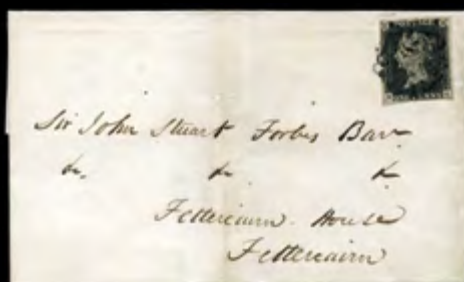 POSTAGE
Sir John Stuart Forbes Bart
&c. &c &c
Fettercairn House
Fettercairn